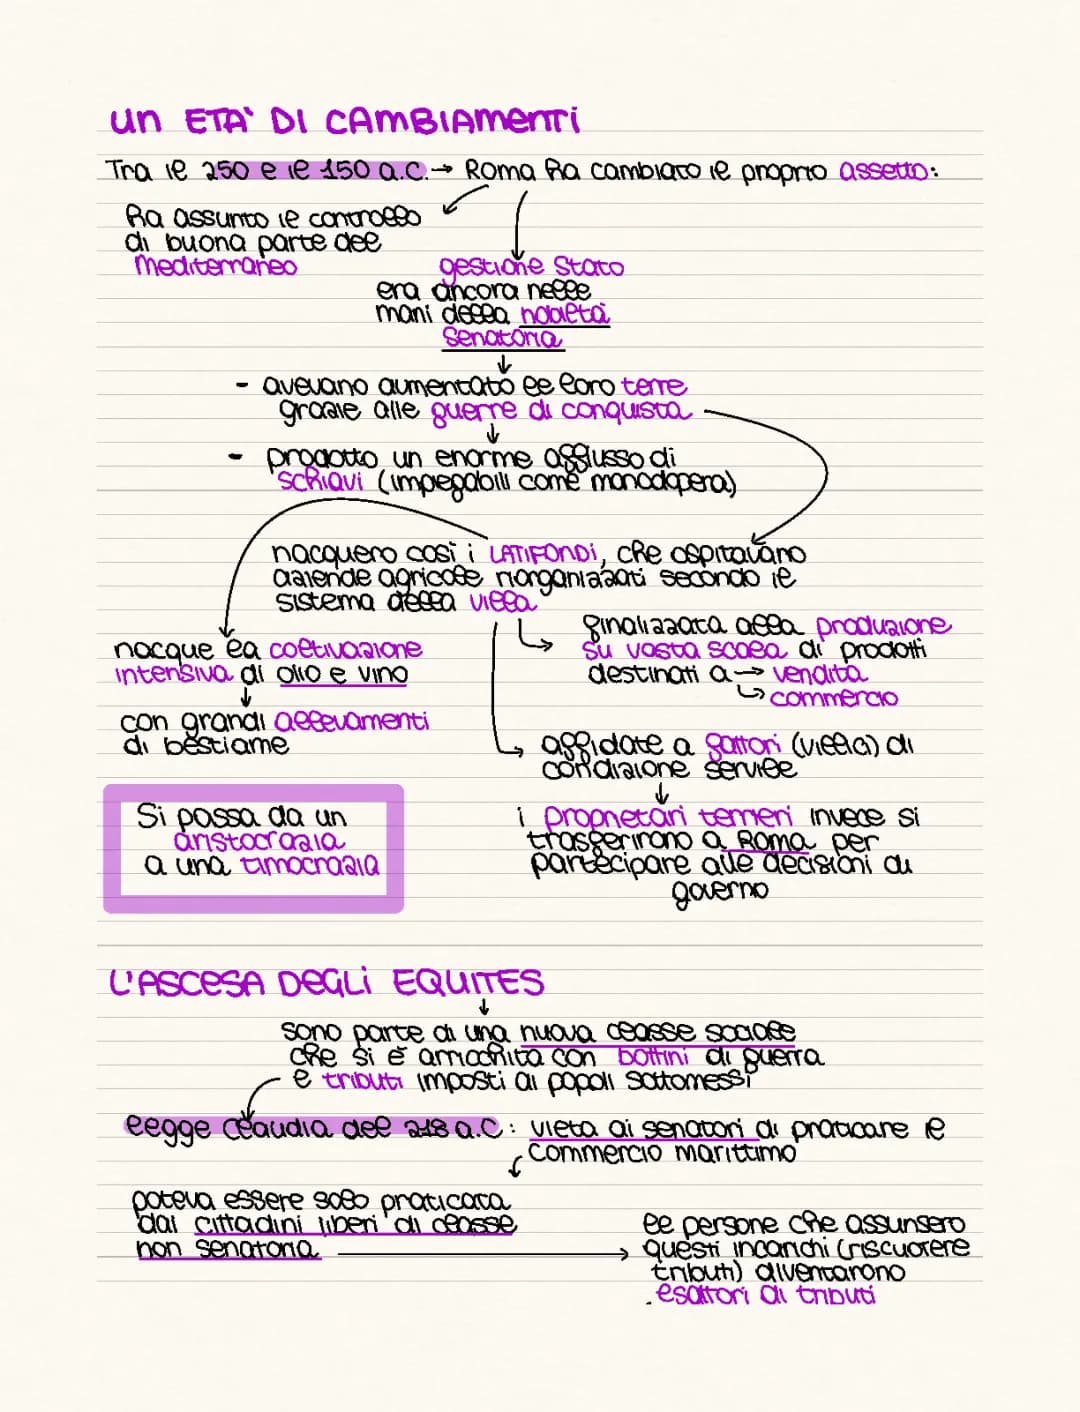 un ETA' DI CAMBIAMENTI
Tra il 250 e il 150 a.C. → Roma ha cambiato il proprio assetto:
ha assunto il controllo
di buona parte del
Mediterraneo
gestione Stato
era ancora nelle
mani della nobiltà
senatoria
↓
- avevano aumentato le loro terre
grazie alle guerre di conquista
↓
- prodotto un enorme afflusso di
schiavi (impiegabili come manodopera)
nacquero così i LATIFONDI, che ospitavano
aziende agricole riorganizzati secondo il
sistema della villa
finalizzata alla produzione
su vasta scala di prodotti
destinati a → vendita
↳ commercio
nacque la coltivazione
intensiva di olio e vino
↓
con grandi allevamenti
di bestiame
affidate a fattori (villici) di
condizione servile
↓
i proprietari terrieri invece si
trasferirono a Roma per
partecipare alle decisioni di
governo
Si passa da un
aristocrazia
a una timocrazia
L'ASCESA DEGLI EQUITES
↓
sono parte di una nuova classe sociale
che si è arricchita con bottini di guerra
e tributi imposti ai popoli sottomessi
legge Claudia del 218 a.C: vieta ai senatori di praticare il
commercio marittimo
poteva essere solo praticata
dai cittadini liberi di classe
non senatoria →
le persone che assunsero
questi incarichi (riscuotere
tributi) diventarono
esattori di tributi